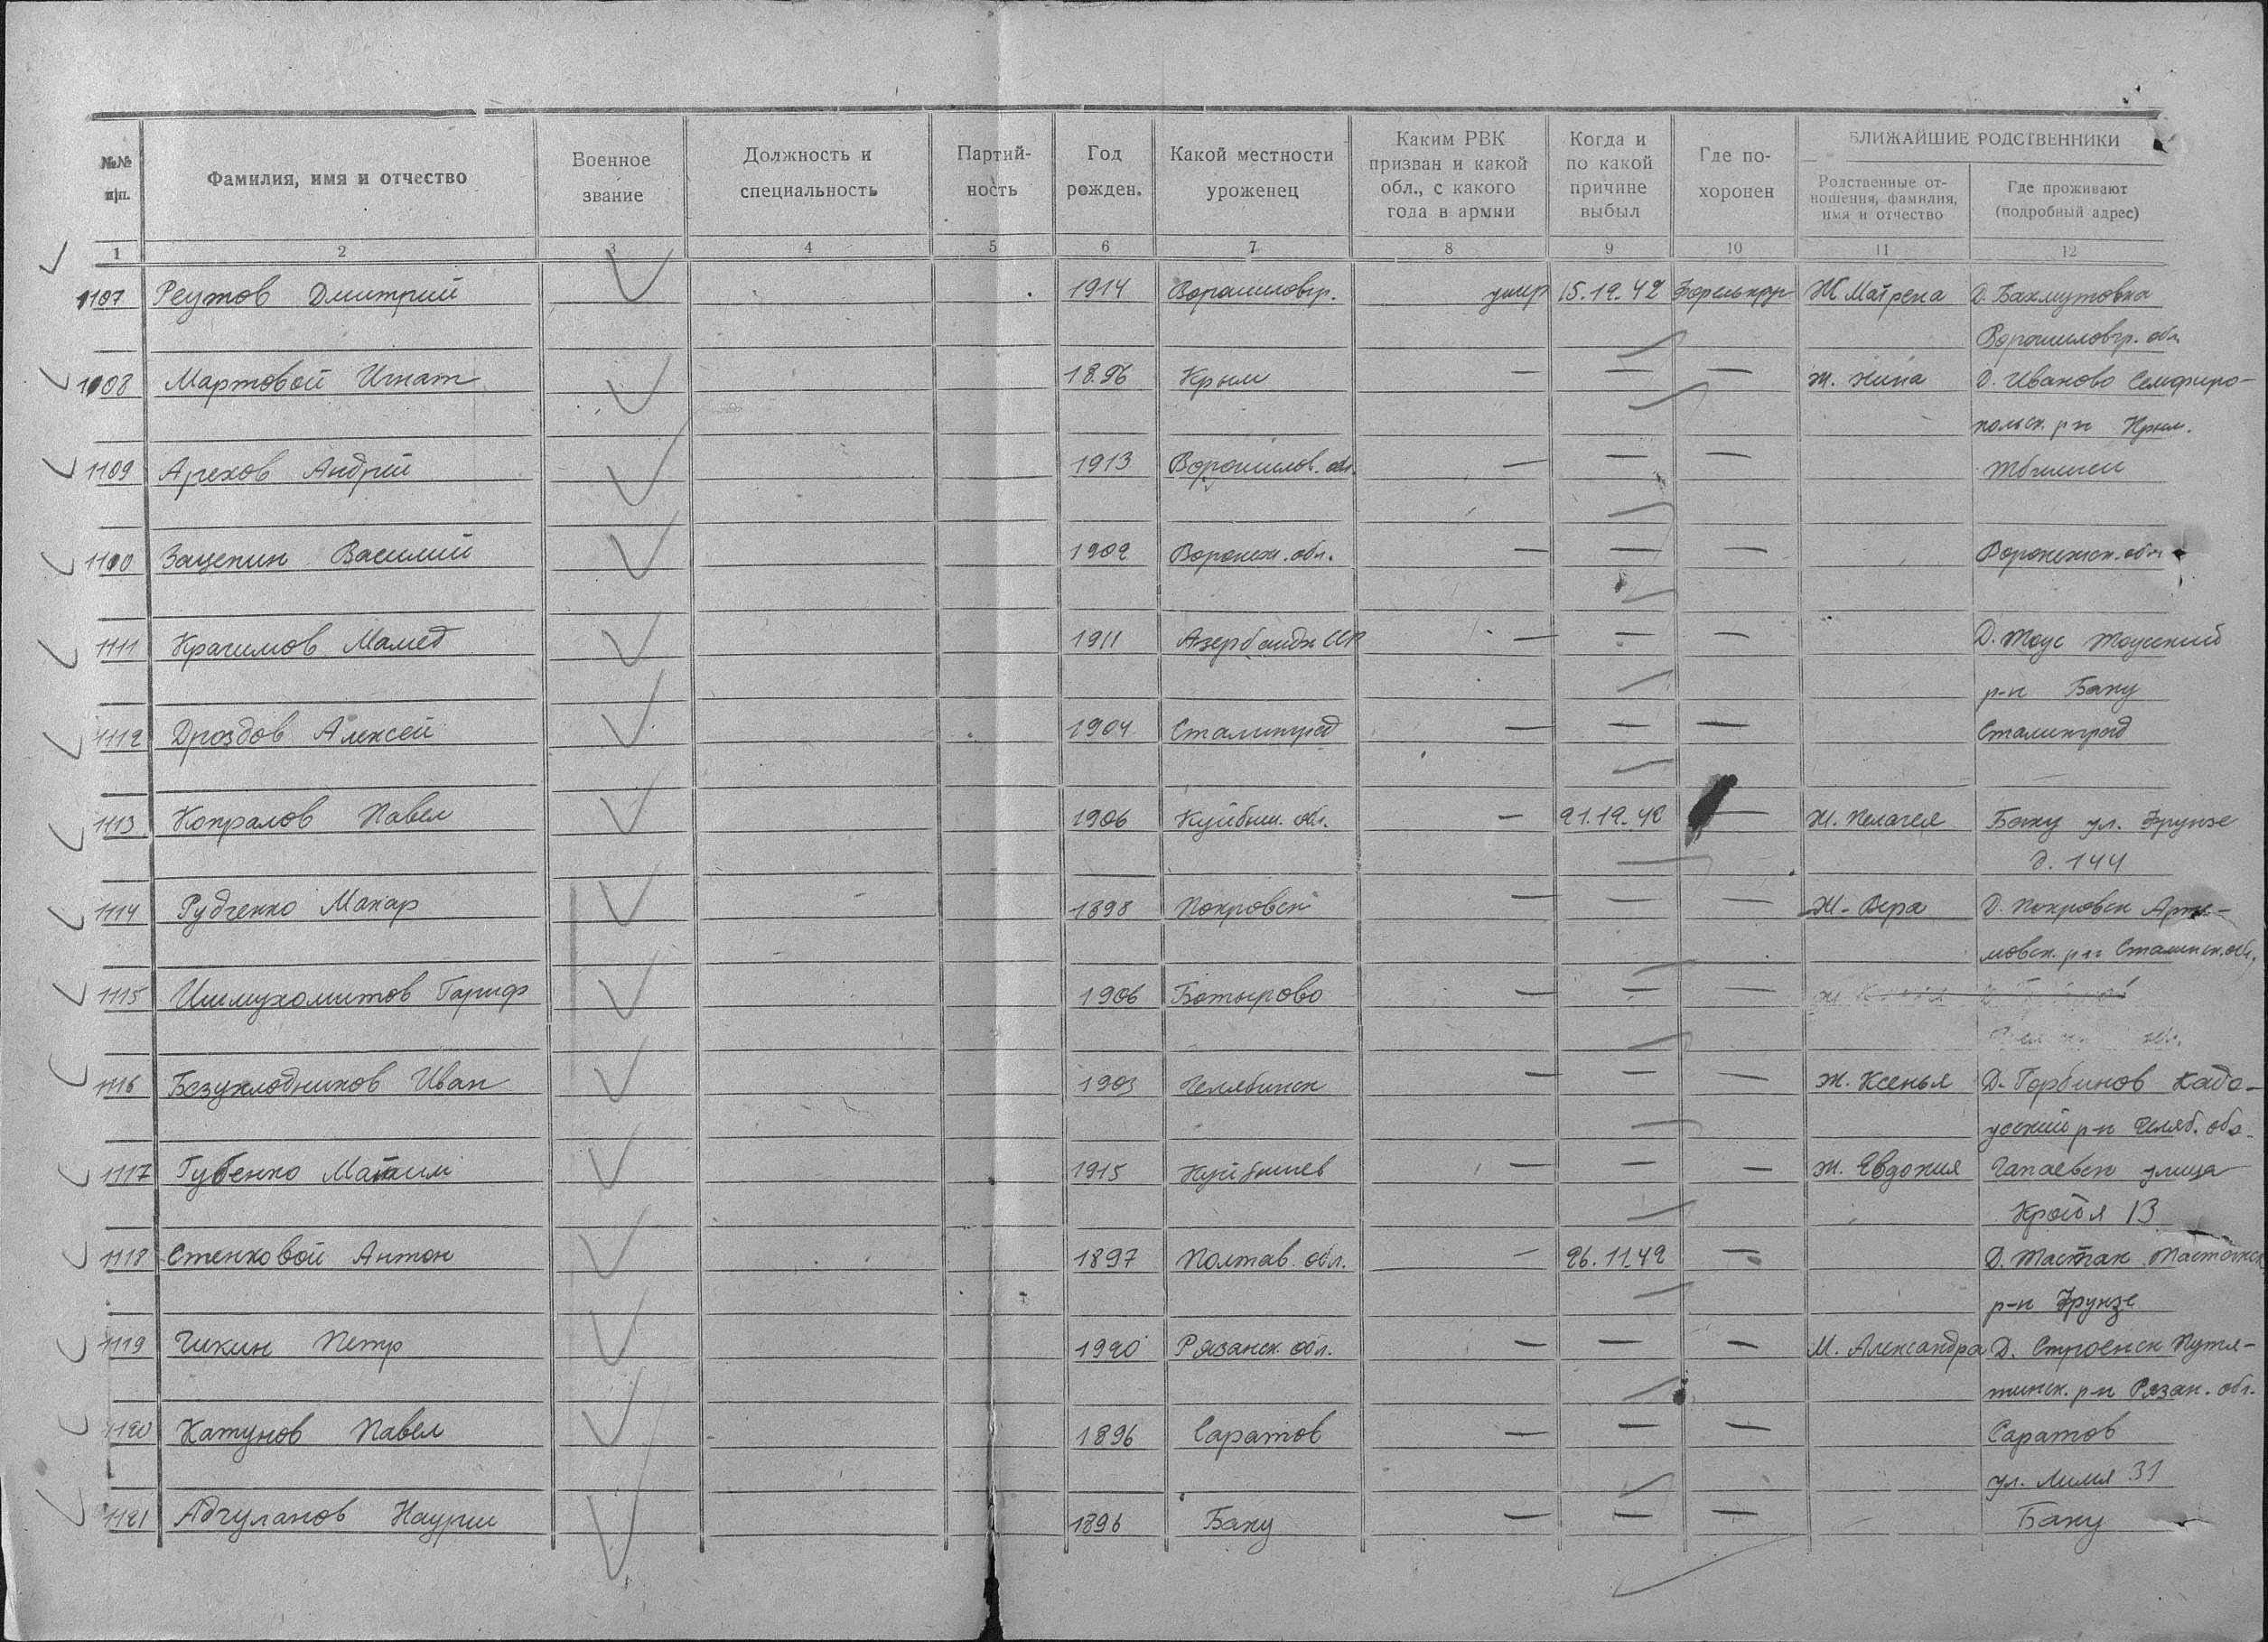 №№ п/п.
Фамилия, имя и отчество
Военное звание
Должность и специальность
Партий-ность
Год рожден.
Какой местности уроженец
Каким РВК призван и какой обл., с какого года в армии
Когда и по какой причине выбыл
Где по-хоронен
БЛИЖАЙШИЕ РОДСТВЕННИКИ
Родственные от-ношения, фамилия, имя и отчество
Где проживают (подробный адрес)
1 2 3 4 5 6 7 8 9 10 11 12
1107 Реутов Дмитрий 1914 Ворошиловгр. умер 15.12.42 Ж Матрена Д. Бахмутовка
Ворошиловгр. обл.
1108 Мартовой Игнат 1896 Крым — — — Ж. Нина Д. Иваново Семфиро-
польск. р-н Крым.
1109 Арехов Андрей 1913 Ворошилов. обл. — — — Тбилиси
1110 Зацепин Василий 1902 Воронеж. обл. — — — Воронежск. обл.
1111 Крагимов Мамед 1911 Азербайдж ССР — — — Д. Тоус Тоусский
р-н Баку
1112 Дроздов Алексей 1904 Сталинград — — — Сталинград
1113 Копралов Павел 1906 Куйбыш. обл. — 21.12.42 — Ж. Пелагея Баку ул. Фрунзе
д. 144
1114 Рудченко Макар 1898 Покровск — — — Ж. Вера Д. Покровск Арте-
мовск. р-н Сталинск. обл.
1115 Ишмухомитов Гариф 1906 Ботырово — — —
1116 Безукладников Иван 1903 Челябинск — — — Ж. Ксенья Д. Горбинов Кадо-
усский р-н Челяб. обл.
1117 Губенко Максим 1915 Куйбышев — — — Ж. Евдокия Чапаевск улица
13
1118 Стенковой Антон 1897 Полтав. обл. — 26.11.42 — Д. Тастак
р-н Фрунзе
1119 Чикин Петр 1920 Рязанск. обл. — — — М. Александра Д. Строенск Путя-
тинск. р-н Рязан. обл.
1120 Катунов Павел 1896 Саратов — — — Саратов
ул. 31
1121 Адгуланов Наурги 1896 Баку — — — Баку